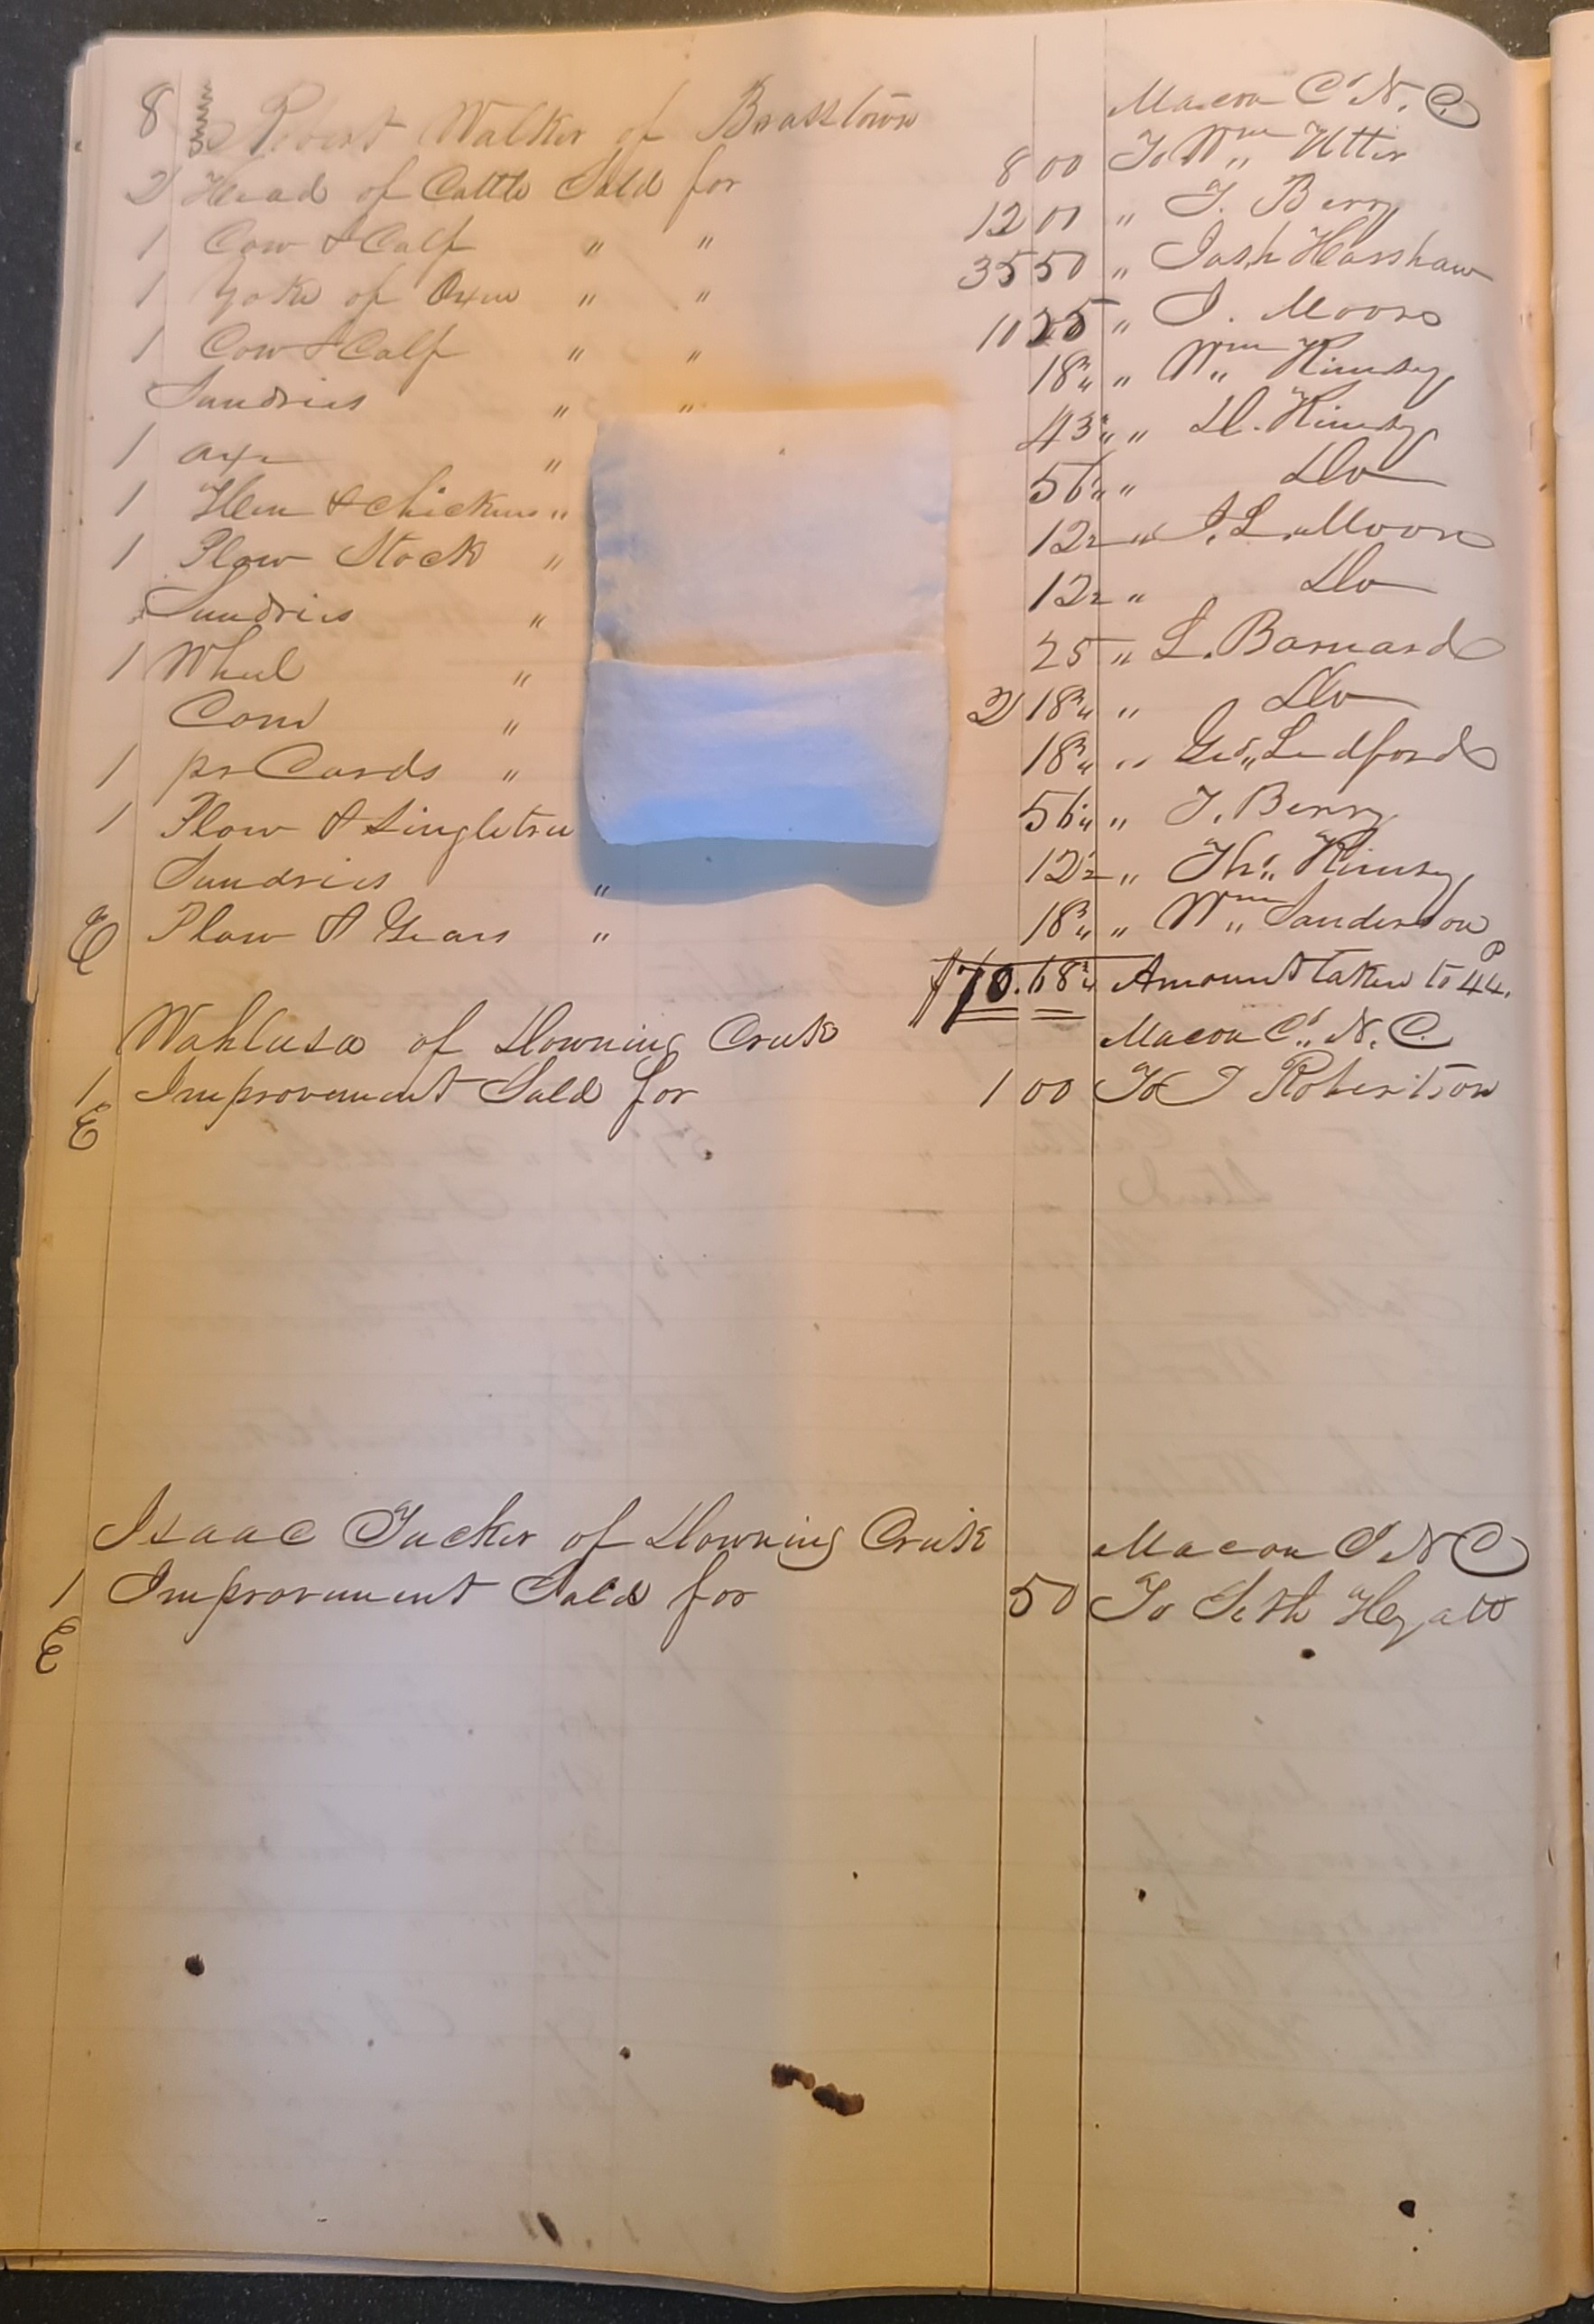 8 Robert Walker of Brasstown Macon Co N. C.
2 Head of Cattle Sold for 8 00 To Wm Utter
1 Cow & Calf " " 12 00 " T. Berry
1 Yoke of Oxen " " 35 50 " Josh Harshaw
1 Cow & Calf " " 10 25 " I. Moore
Sundries " " 18¾ " Wm Kimsey
1 axe " 43¾ " D. Kimsey
1 Hen & chickens " 56¼ " Do
1 Plow Stock " 12½ " I. L. Moore
Sundries " 12½ " Do
1 Wheel " 25 " L. Barnard
Corn " 2 18¾ " Do
1 pr Cards " 18¾ " Geo. Ledford
1 Plow & Singletree 56¼ " T. Berry
Sundries " 12½ " Thos. Kimsey
E Plow & Gears " 18¾ " Wm Sanderson
$70.68¾ Amount taken to P 44.
Wahlusa of Downing Creek Macon Co. N. C.
1 Improvement Sold for 1 00 To I Robertson
E
Isaac Tucker of Downing Creek Macon Co N C
1 Improvement Sold for 50 To Seth Hyatt
E